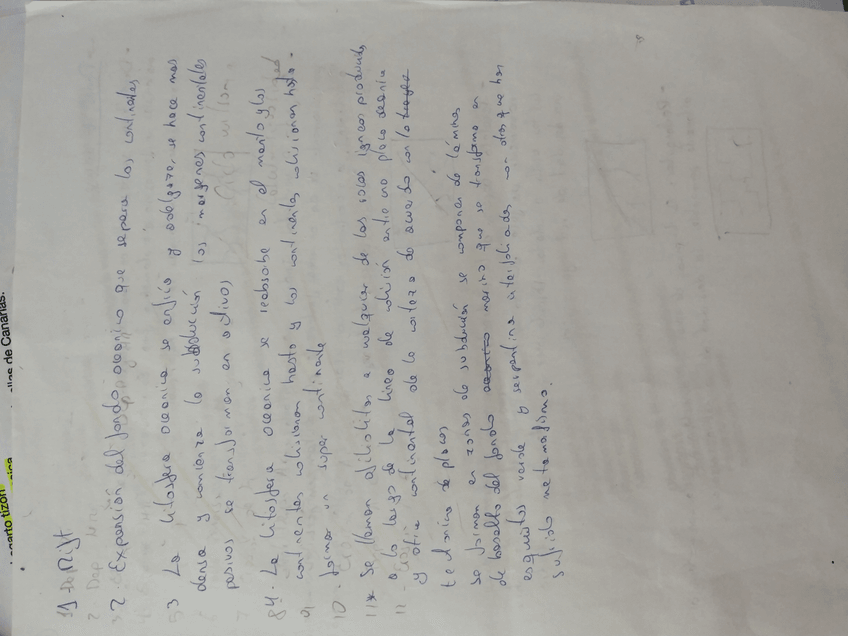 1) Rift
2. Expansión del fondo oceanico que separa los continentes
3 La litosfera oceanica se enfria y adelgaza, se hace mas
densa y comienza la subducción los imargenes continentales
pasivos se transforman en activos
4. La litosfera oceanica se reabsorbe en el manto y los
continentes colisionan hasta y los continentes colisionan hasta
formar un super continente
Se llaman ofiolitas a cualquier de las rocas igneas producidas
a lo largo de la linea de colisión entre una placa oceanica
y otra continental de la corteza de acuerdo con la
tectonica de placas
se forman en zonas de subducción se componen de láminas
de basalto del fondo oceanico marino que se transforma en
esquistos verde y serpentina interfoliados con otras que han
sufrido metamorfismo.
Lagarto tizón
ellas de Canarias.